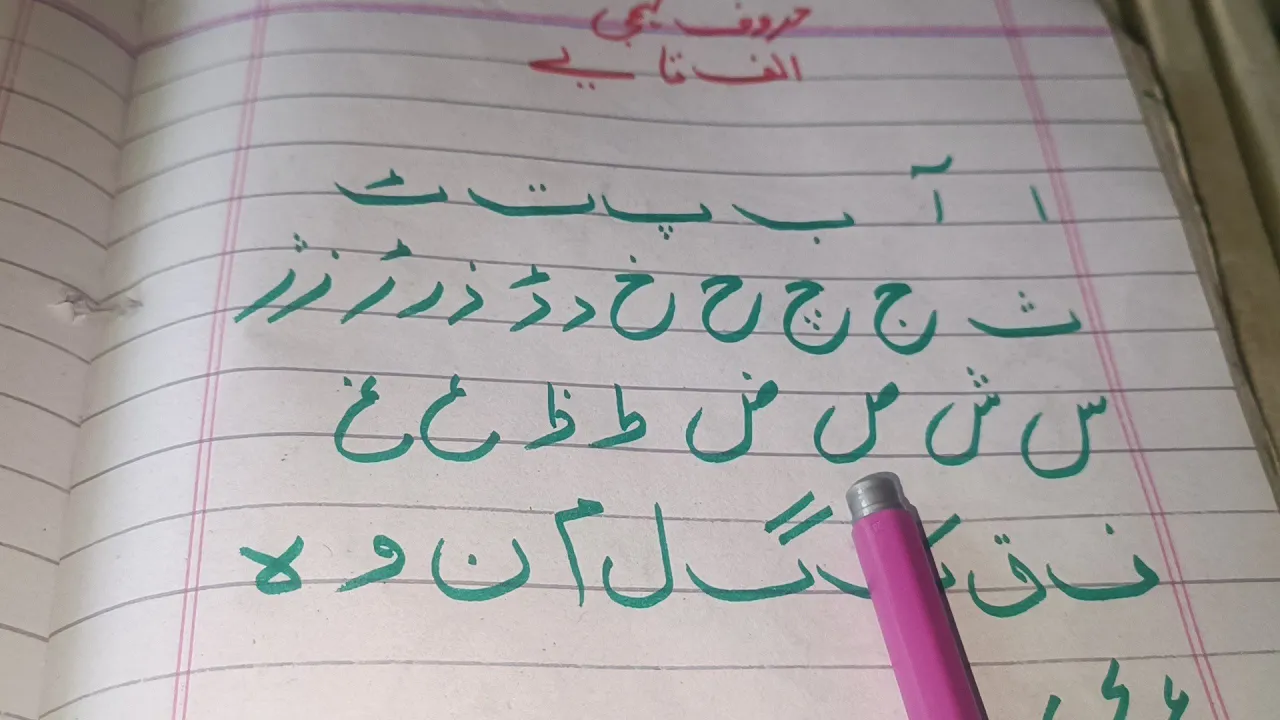 حروف تہجی
الف تا یے
ا آ ب پ ت ٹ
ث ج چ ح خ د ڈ ذ ر ڑ ز ژ
س ش ص ض ط ظ ع غ
ف ق ک گ ل م ن و ہ
ء ی